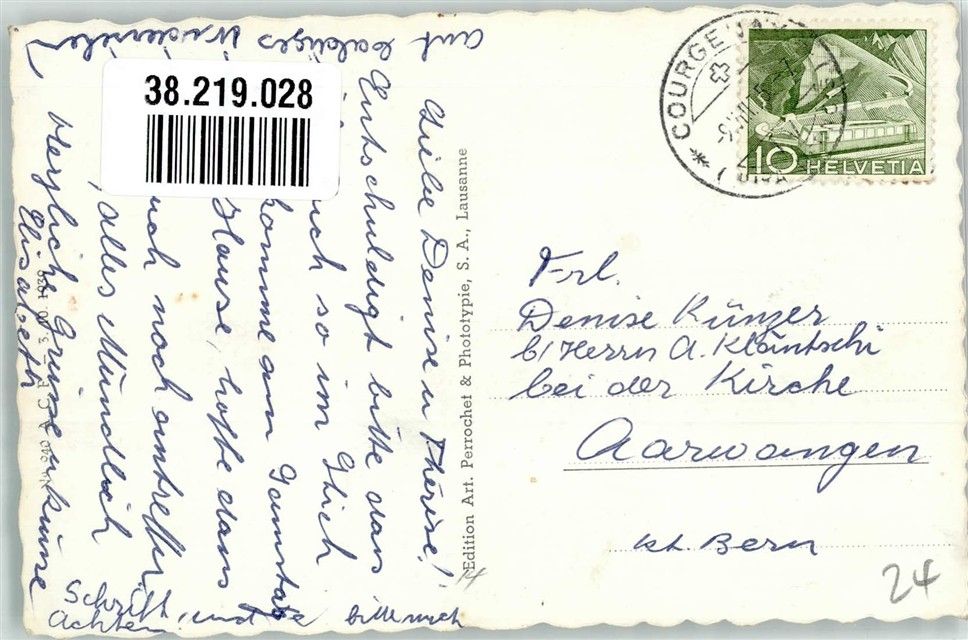 Liebe Denise u Thérèse!
Entschuldigt bitte dass
ich Euch so im Stich
komme am Samstag
Hause, hoffe dass
Euch noch antreffe.
alles Mündlich
Herzliche Grüsse u küsse
Elisabeth
auf baldiges Wiedersehen
Schrift, und bitte nicht
achten
Edition Art. Perrochet & Phototypie, S. A., Lausanne
38.219.028
COURGENAY
10 HELVETIA
Frl.
Denise Künzer
b/Herrn A. Kläntschi
bei der Kirche
Aarwangen
kt. Bern
14
24